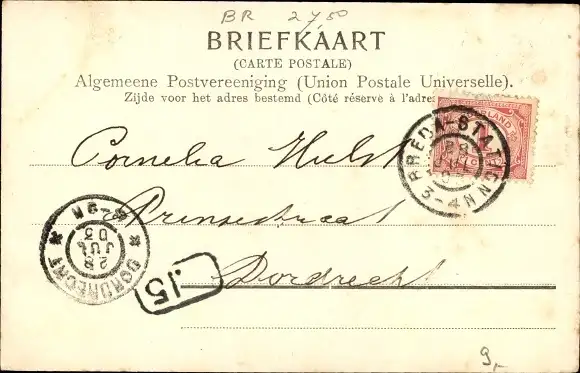 BR 2750
BRIEFKAART
(CARTE POSTALE)
Algemeene Postvereeniging (Union Postale Universelle).
Zijde voor het adres bestemd (Côté réservé à l'adre
BREDA-STATION
28
JUL
3-4N
Cornelia Hulst
Prinsestraat
Dordrecht
DORDRECHT
28
JUL
03
15
9,-